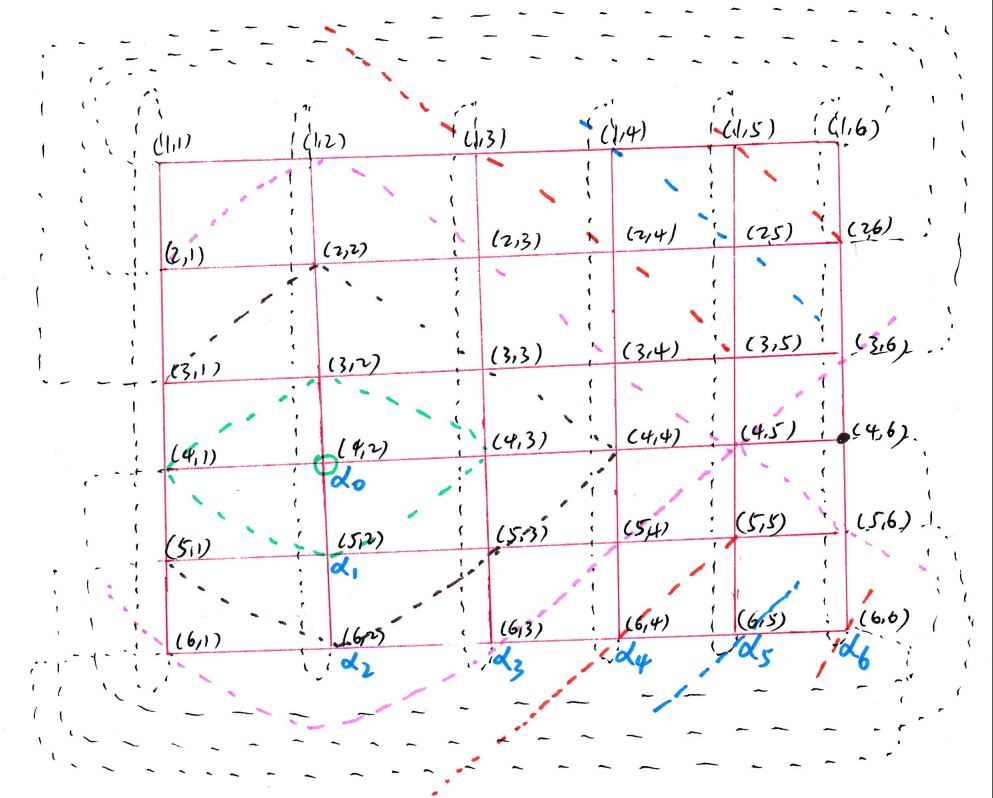 (1,1) (1,2) (1,3) (1,4) (1,5) (1,6)
(2,1) (2,2) (2,3) (2,4) (2,5) (2,6)
(3,1) (3,2) (3,3) (3,4) (3,5) (3,6)
(4,1) (4,2) (4,3) (4,4) (4,5) (4,6)
α0
(5,1) (5,2) (5,3) (5,4) (5,5) (5,6)
α1
(6,1) (6,2) (6,3) (6,4) (6,5) (6,6)
α2 α3 α4 α5 α6